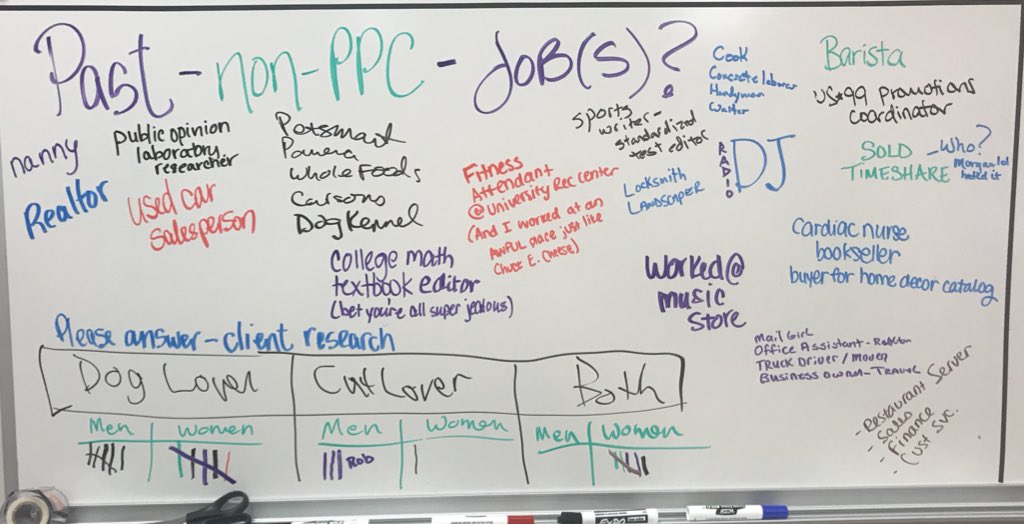 Past - non-PPC - JOB(S)?
nanny
Realtor
public opinion
laboratory
researcher
Used car
Salesperson
Petsmart
Panera
Whole Foods
Carsons
Dog Kennel
college math
textbook editor
(bet you're all super jealous)
Fitness
Attendant
@University Rec Center
(And I worked at an
AWFUL place just like
Chuck E. Cheese)
sports
writer-
standardized
test editor
Locksmith
LANDSCAPER
Cook
Concrete laborer
Handyman
Waiter
RADIO
DJ
Barista
US*99 promotions
coordinator
SOLD
TIMESHARE
-Who?
hated it
cardiac nurse
bookseller
buyer for home decor catalog
Worked @
music
Store
Mail Girl
Office Assistant - Realtor
TRUCK DRIVER / Mover
Business Owner - Travel
- Restaurant Server
- Sales
- Finance
- Cust Svc.
Please answer - client research
Dog Lover
Cat Lover
Both
Men
Women
Men
Women
Men
Women
Rob